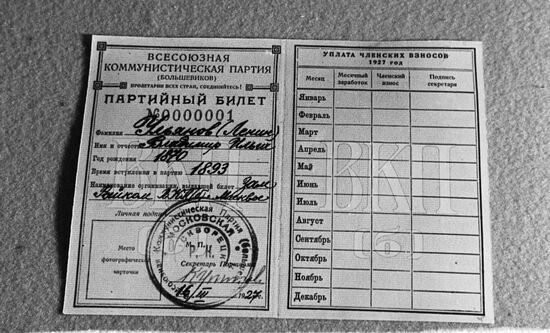 ВСЕСОЮЗНАЯ
КОММУНИСТИЧЕСКАЯ ПАРТИЯ
(БОЛЬШЕВИКОВ)
ПРОЛЕТАРИИ ВСЕХ СТРАН, СОЕДИНЯЙТЕСЬ!
ПАРТИЙНЫЙ БИЛЕТ
№0000001
Фамилия Ульянов (Ленин)
Имя и отчество Владимир Ильич
Год рождения 1870
Время вступления в партию 1893
Наименование организации, выдавшей билет Зам.
Райком ВКП(б) г. Москвы
Личная подпись
Место
фотографической
карточки
М. П.
Секретарь Парткома
16/III 1927 г.
Коммунистическая Партия
МОСКОВСКАЯ
УПЛАТА ЧЛЕНСКИХ ВЗНОСОВ
1927 год
Месяц Месячный заработок Членский взнос Подпись секретаря
Январь
Февраль
Март
Апрель
Май
Июнь
Июль
Август
Сентябрь
Октябрь
Ноябрь
Декабрь